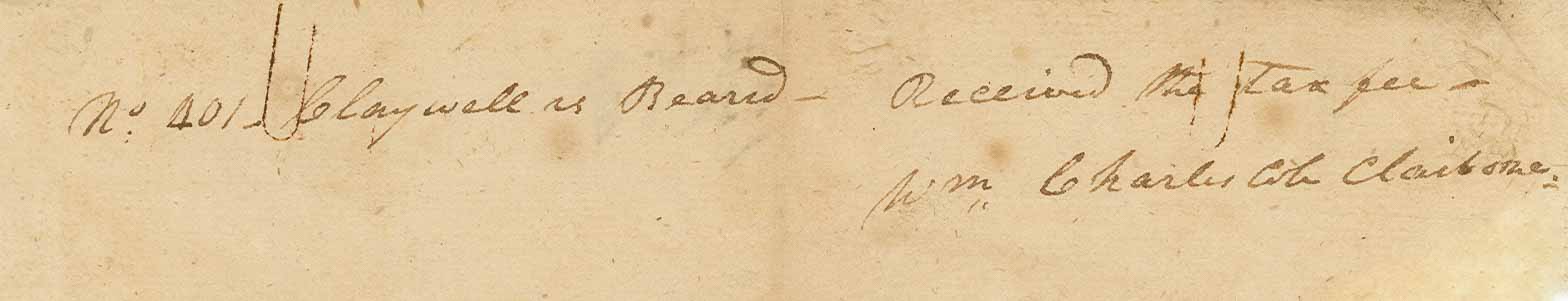 No. 401 - Claywell vs Beard - Received the Tax fee -
Wm. Charles Cole Claiborne.